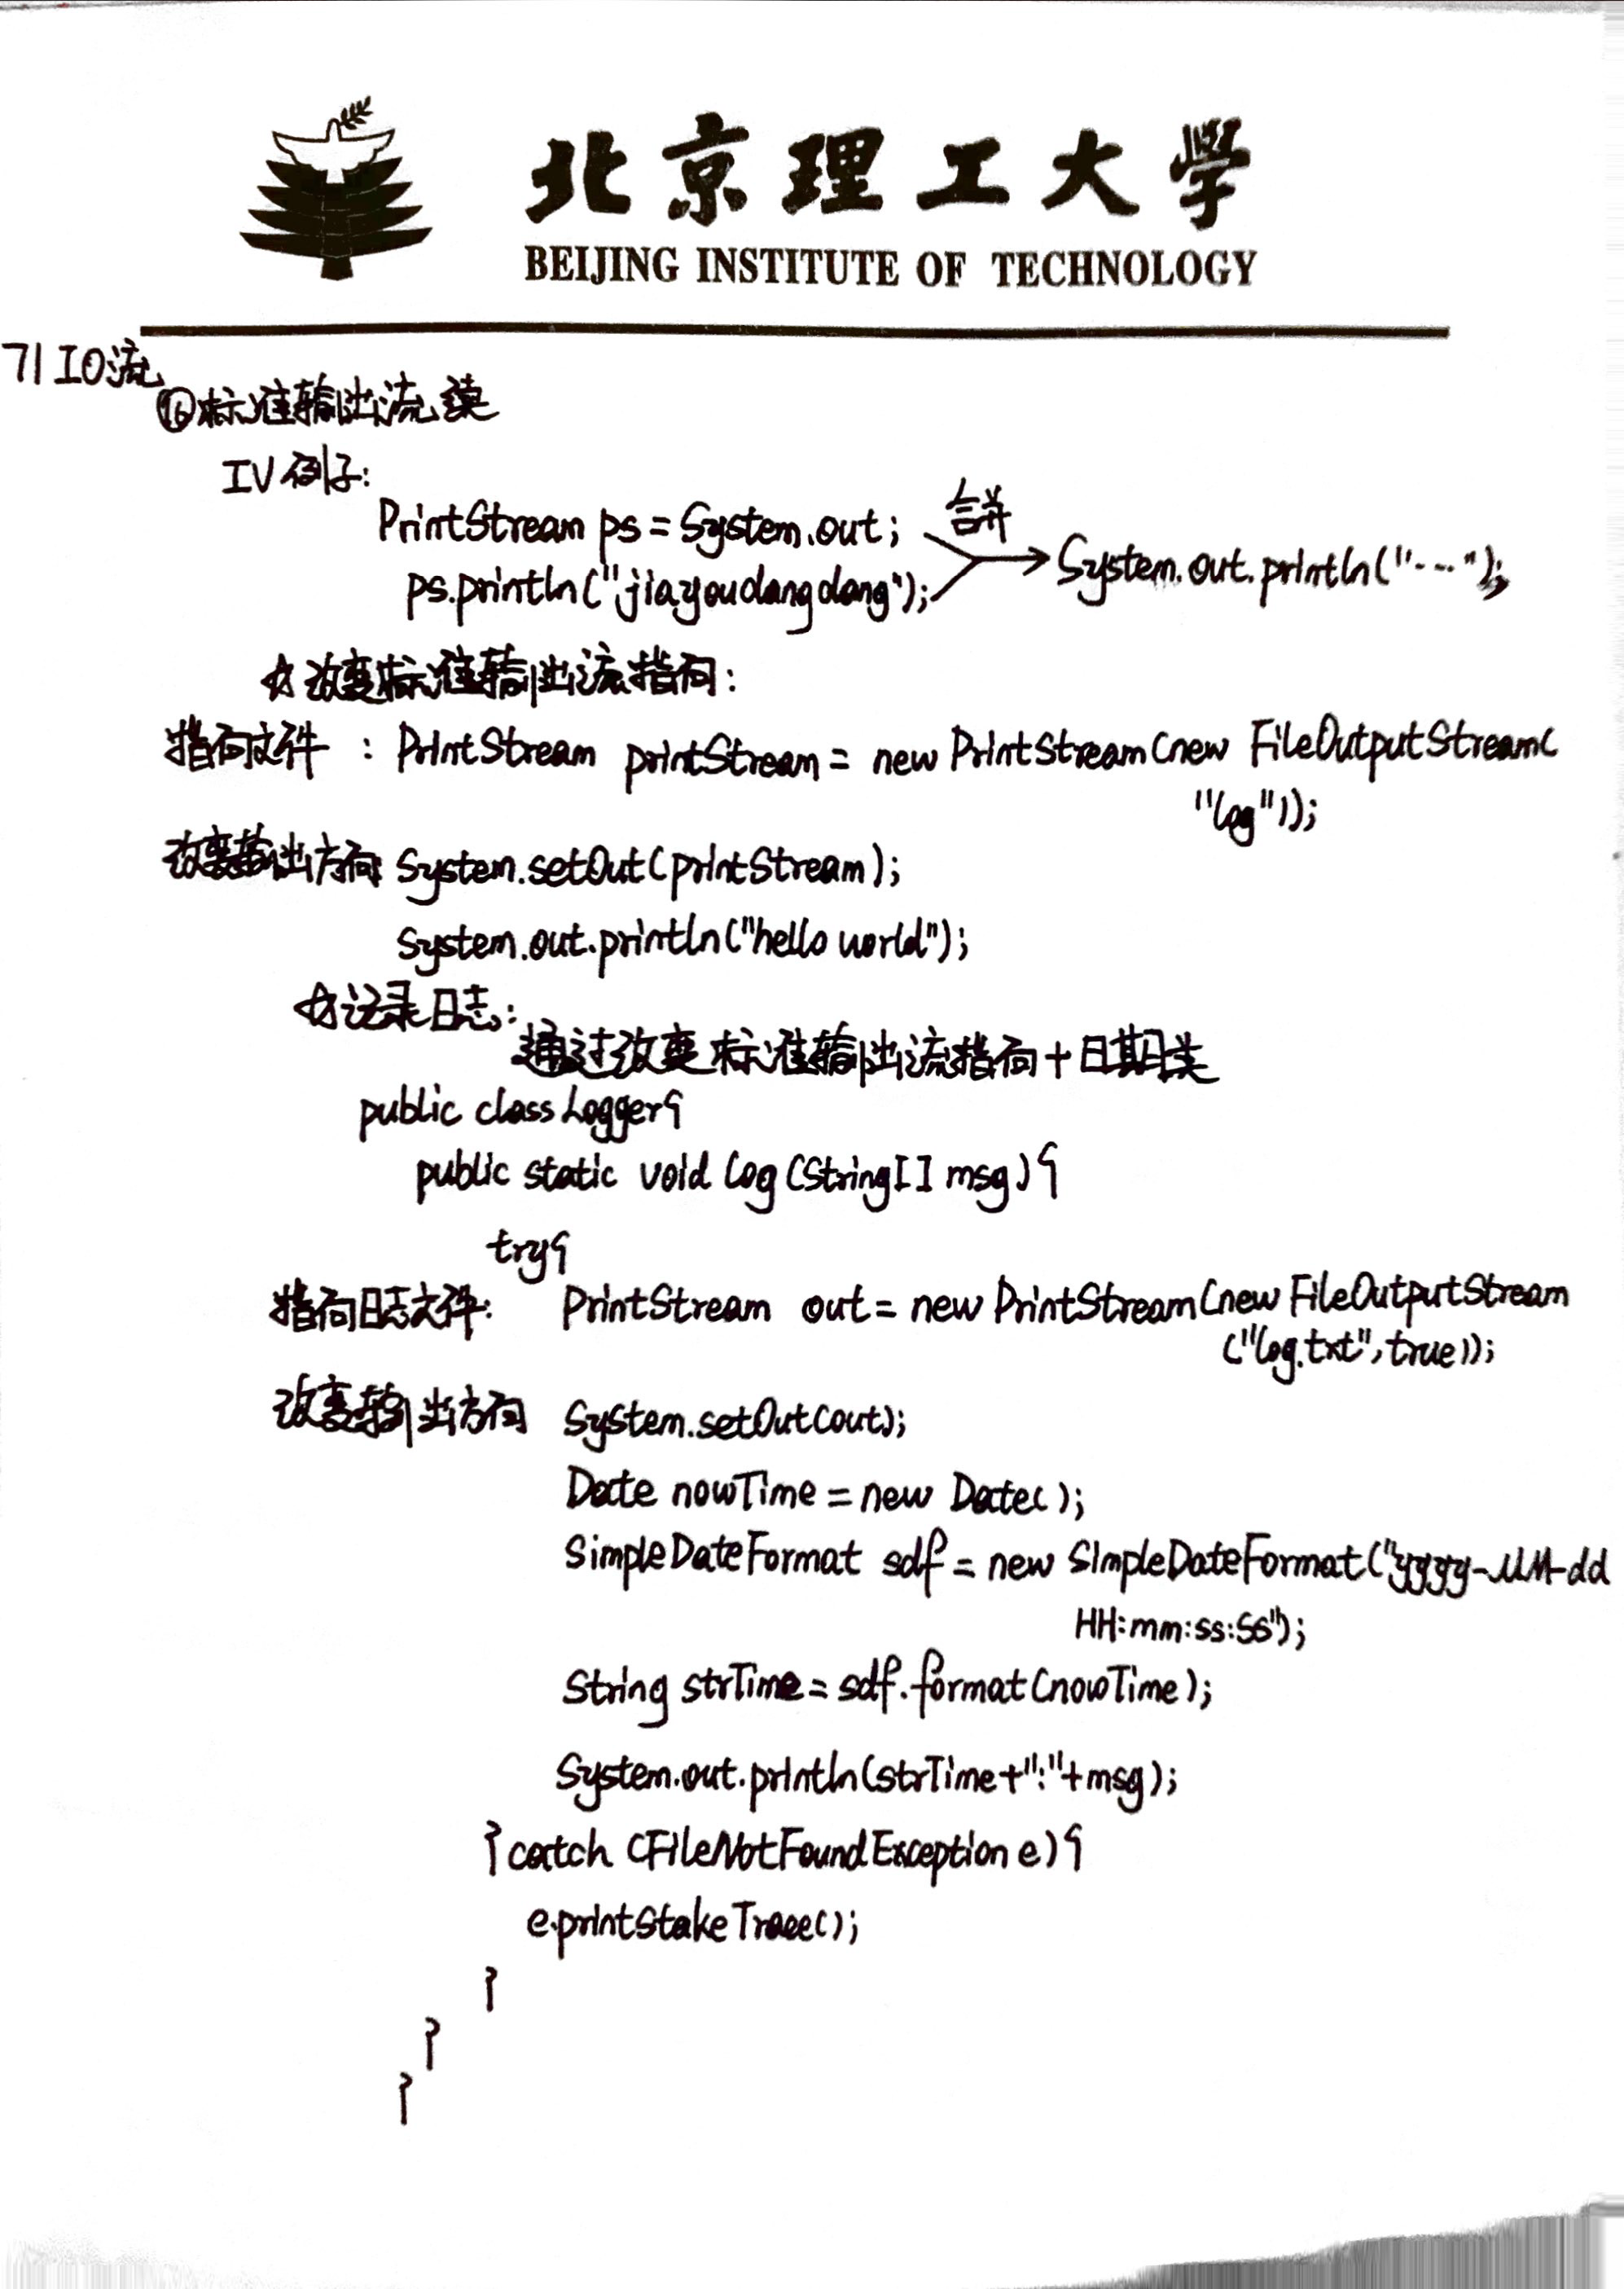 北京理工大學
BEIJING INSTITUTE OF TECHNOLOGY
71 IO流
⑯标准输出流 续
IV 例子:
PrintStream ps = System.out;
合并
ps.println("jiayoudangdang");
System.out.println("...");
☆改变标准输出流指向:
指向文件 : PrintStream printStream = new PrintStream(new FileOutputStream(
"log"));
改变输出方向 System.setOut(printStream);
System.out.println("hello world");
☆记录日志:
通过改变标准输出流指向+日期类
public class Logger{
public static void log(String[] msg){
try{
指向日志文件: PrintStream out = new PrintStream(new FileOutputStream
("log.txt",true));
改变输出方向 System.setOut(out);
Date nowTime = new Date();
SimpleDateFormat sdf = new SimpleDateFormat("yyyy-MM-dd
HH:mm:ss:SS");
String strTime = sdf.format(nowTime);
System.out.println(strTime+":"+msg);
} catch (FileNotFoundException e){
e.printStakeTrace();
}
}
}